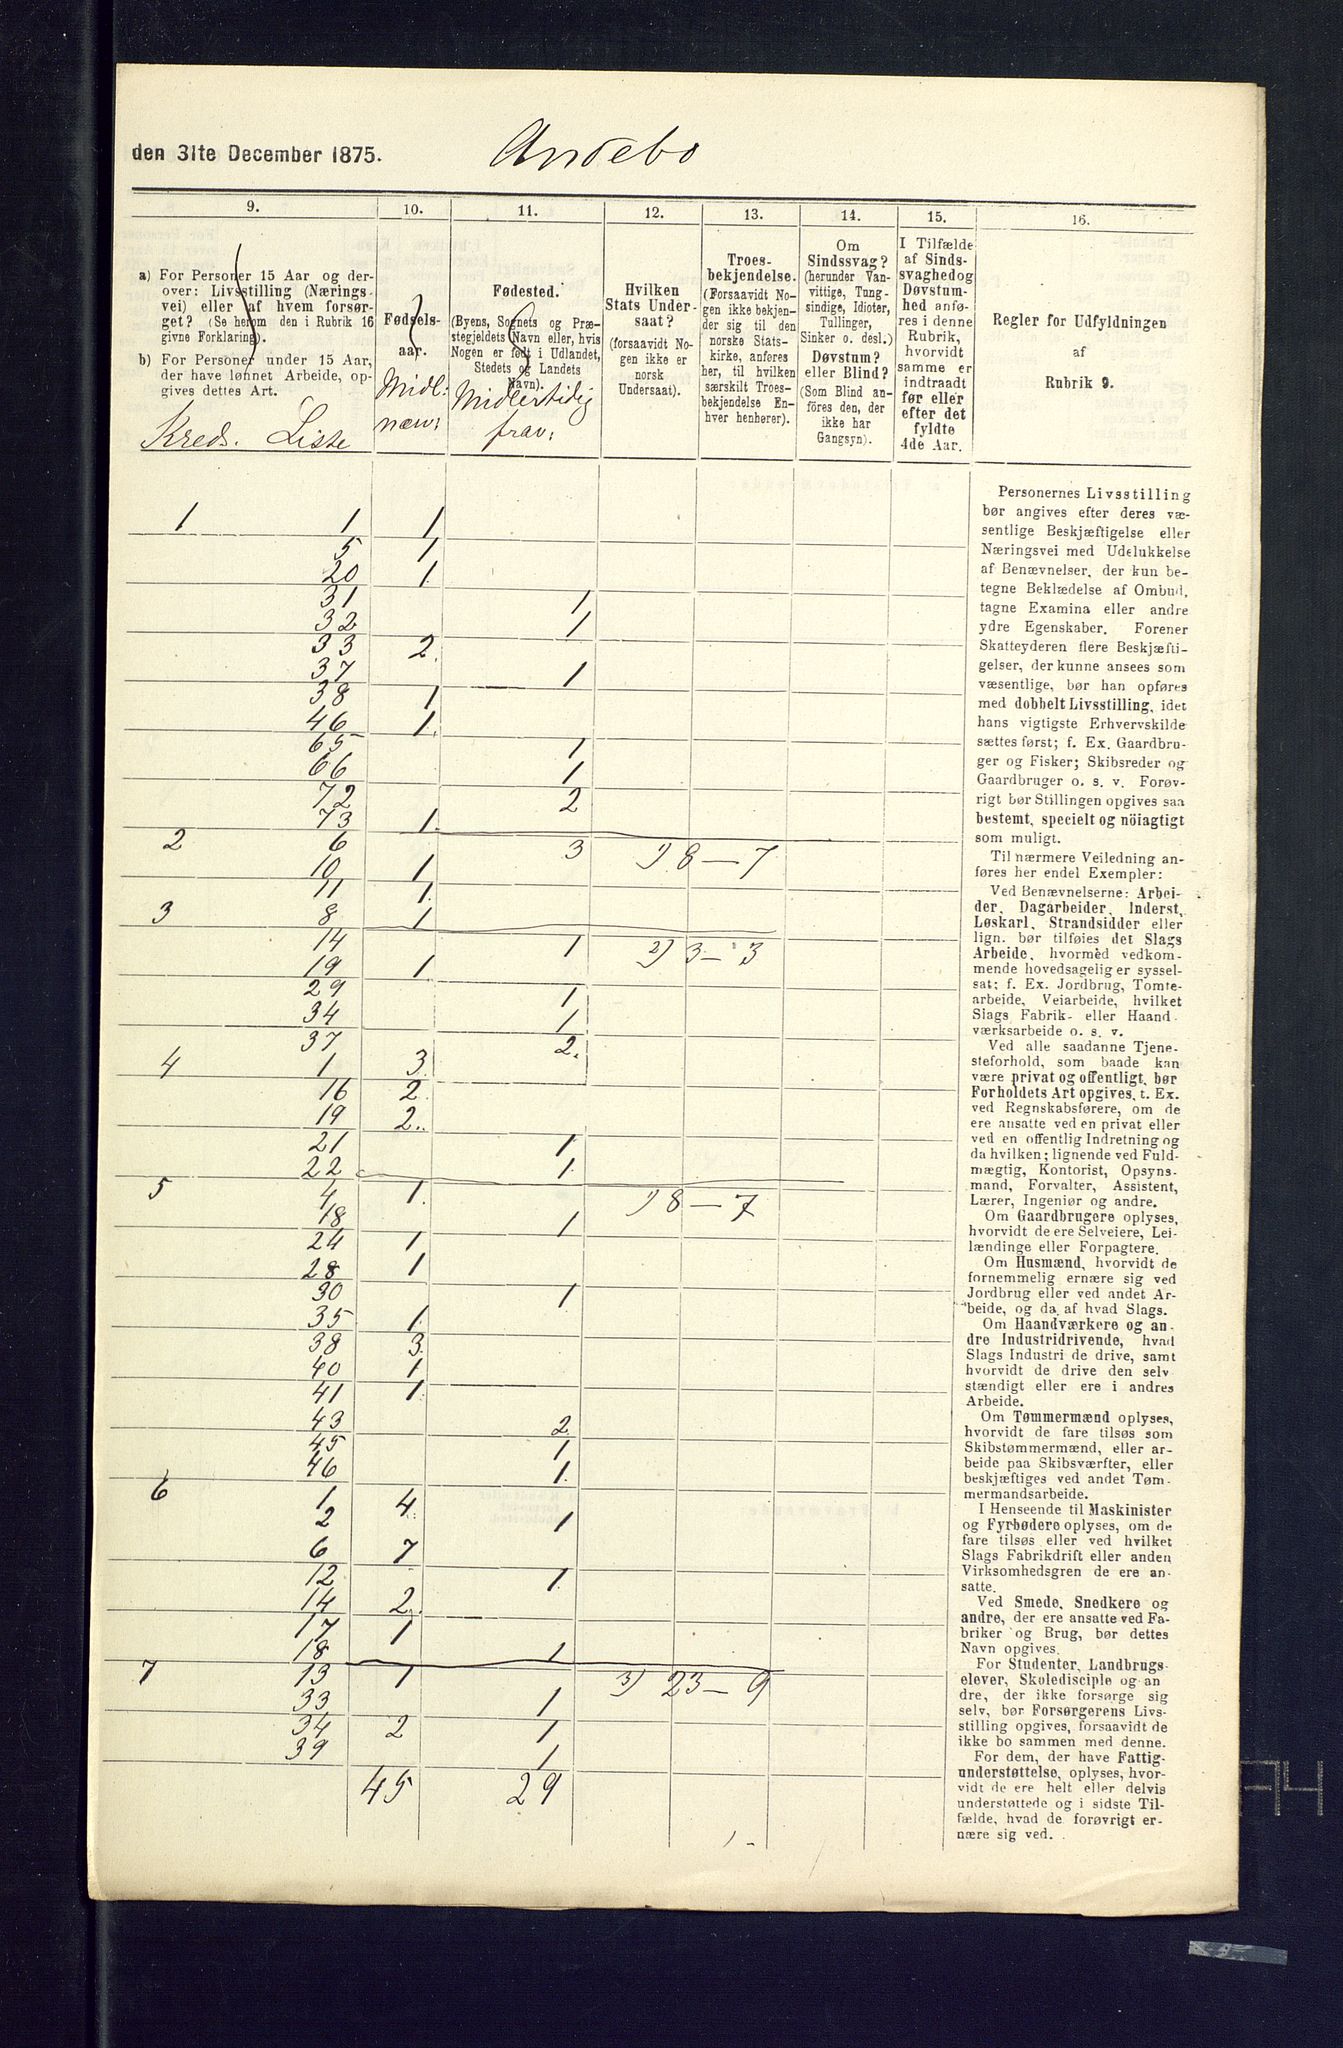 den 31te December 1875. Andebo
9. 10. 11. 12. 13. 14. 15. 16.
a) For Personer 15 Aar og der-
over: Livsstilling (Nærings-
vei) eller af hvem forsør-
get? (Se herom den i Rubrik 16
givne Forklaring).
b) For Personer under 15 Aar,
der have lønnet Arbeide, op-
gives dettes Art.
Kreds. Liste
Fødsels-
aar.
Midl:
nær:
Fødested.
(Byens, Sognets og Præ-
stegjeldets Navn eller, hvis
Nogen er født i Udlandet,
Stedets og Landets
Navn).
Midlertidig
frav:
Hvilken
Stats Under-
saat?
(forsaavidt No-
gen ikke er
norsk
Undersaat).
Troes-
bekjendelse.
(Forsaavidt No-
gen ikke bekjen-
der sig til den
norske Stats-
kirke, anføres
her, til hvilken
særskilt Troes-
bekjendelse En-
hver henhører).
Om
Sindssvag?
(herunder Van-
vittige, Tung-
sindige, Idioter,
Tullinger,
Sinker o. desl.)
Døvstum?
eller Blind?
(Som Blind an-
føres den, der
ikke har
Gangsyn).
I Tilfælde
af Sinds-
svaghed og
Døvstum-
hed anfø-
res i denne
Rubrik,
hvorvidt
samme er
indtraadt
før eller
efter det
fyldte
4de Aar.
Regler for Udfyldningen
af
Rubrik 9.
1 1 1
5 1
20 1
31 1
32 1
33 2
37 1
38 1
46 1
65 1
66 1
72 2
73 1
2 6 3 1) 8 — 7
10 1
11 1
3 8 1
14 1 2) 3 — 3
19 1
29 1
34 1
37 2
4 1 3
16 2
19 2
21 1
22 1
5 4 1 1) 8 — 7
18 1
24 1
28 1
30 1
35 1
38 3
40 1
41 1
43 2
45 1
46 1
6 1 4
2 1
6 7
12 1
14 2
17 1
18 1
7 13 1 3) 23 — 9
33 1
34 2 1
39 1
45 29
Personernes Livsstilling
bør angives efter deres væ-
sentlige Beskjæftigelse eller
Næringsvei med Udelukkelse
af Benævnelser, der kun be-
tegne Beklædelse af Ombud,
tagne Examina eller andre
ydre Egenskaber. Forener
Skatteyderen flere Beskjæfti-
gelser, der kunne ansees som
væsentlige, bør han opføres
med dobbelt Livsstilling, idet
hans vigtigste Erhvervskilde
sættes først; f. Ex. Gaardbru-
ger og Fisker; Skibsreder og
Gaardbruger o. s. v. Forøv-
rigt bør Stillingen opgives saa
bestemt, specielt og nöiagtigt
som muligt.
Til nærmere Veiledning an-
føres her endel Exempler:
Ved Benævnelserne: Arbei-
der, Dagarbeider, Inderst,
Løskarl, Strandsidder eller
lign. bør tilføies det Slags
Arbeide, hvormed vedkom-
mende hovedsagelig er syssel-
sat; f. Ex. Jordbrug, Tomte-
arbeide, Veiarbeide, hvilket
Slags Fabrik- eller Haand
værksarbeide o. s. v.
Ved alle saadanne Tjene-
steforhold, som baade kan
være privat og offentligt, bør
Forholdets Art opgives, t. Ex.
ved Regnskabsførere, om de
ere ansatte ved en privat eller
ved en offentlig Indretning og
da hvilken; lignende ved Fuld-
mægtig, Kontorist, Opsyns-
mand, Forvalter, Assistent,
Lærer, Ingeniør og andre.
Om Gaardbrugere oplyses,
hvorvidt de ere Selveiere, Lei-
lændinge eller Forpagtere.
Om Husmænd, hvorvidt de
fornemmelig ernære sig ved
Jordbrug eller ved andet Ar-
beide, og da af hvad Slags.
Om Haandværkere og an-
dre Industridrivende, hvad
Slags Industri de drive, samt
hvorvidt de drive den selv
stændigt eller ere i andres
Arbeide.
Om Tømmermænd oplyses,
hvorvidt de fare tilsøs som
Skibstømmermænd, eller ar-
beide paa Skibsværfter, eller
beskjæftiges ved andet Tøm-
mermandsarbeide.
I Henseende til Maskinister
og Fyrbødere oplyses, om de
fare tilsøs eller ved hvilket
Slags Fabrikdrift eller anden
Virksomhedsgren de ere an-
satte.
Ved Smede, Snedkere og
andre, der ere ansatte ved Fa-
briker og Brug, bør dettes
Navn opgives.
For Studenter, Landbrugs-
elever, Skoledisciple og an
dre, der ikke forsørge sig
selv, bør Forsørgerens Livs-
stilling opgives, forsaavidt de
ikke bo sammen med denne.
For dem, der have Fattig-
understøttelse, oplyses, hvor-
vidt de ere helt eller delvis
understøttede og i sidste Til-
fælde, hvad de forøvrigt er-
nære sig ved.